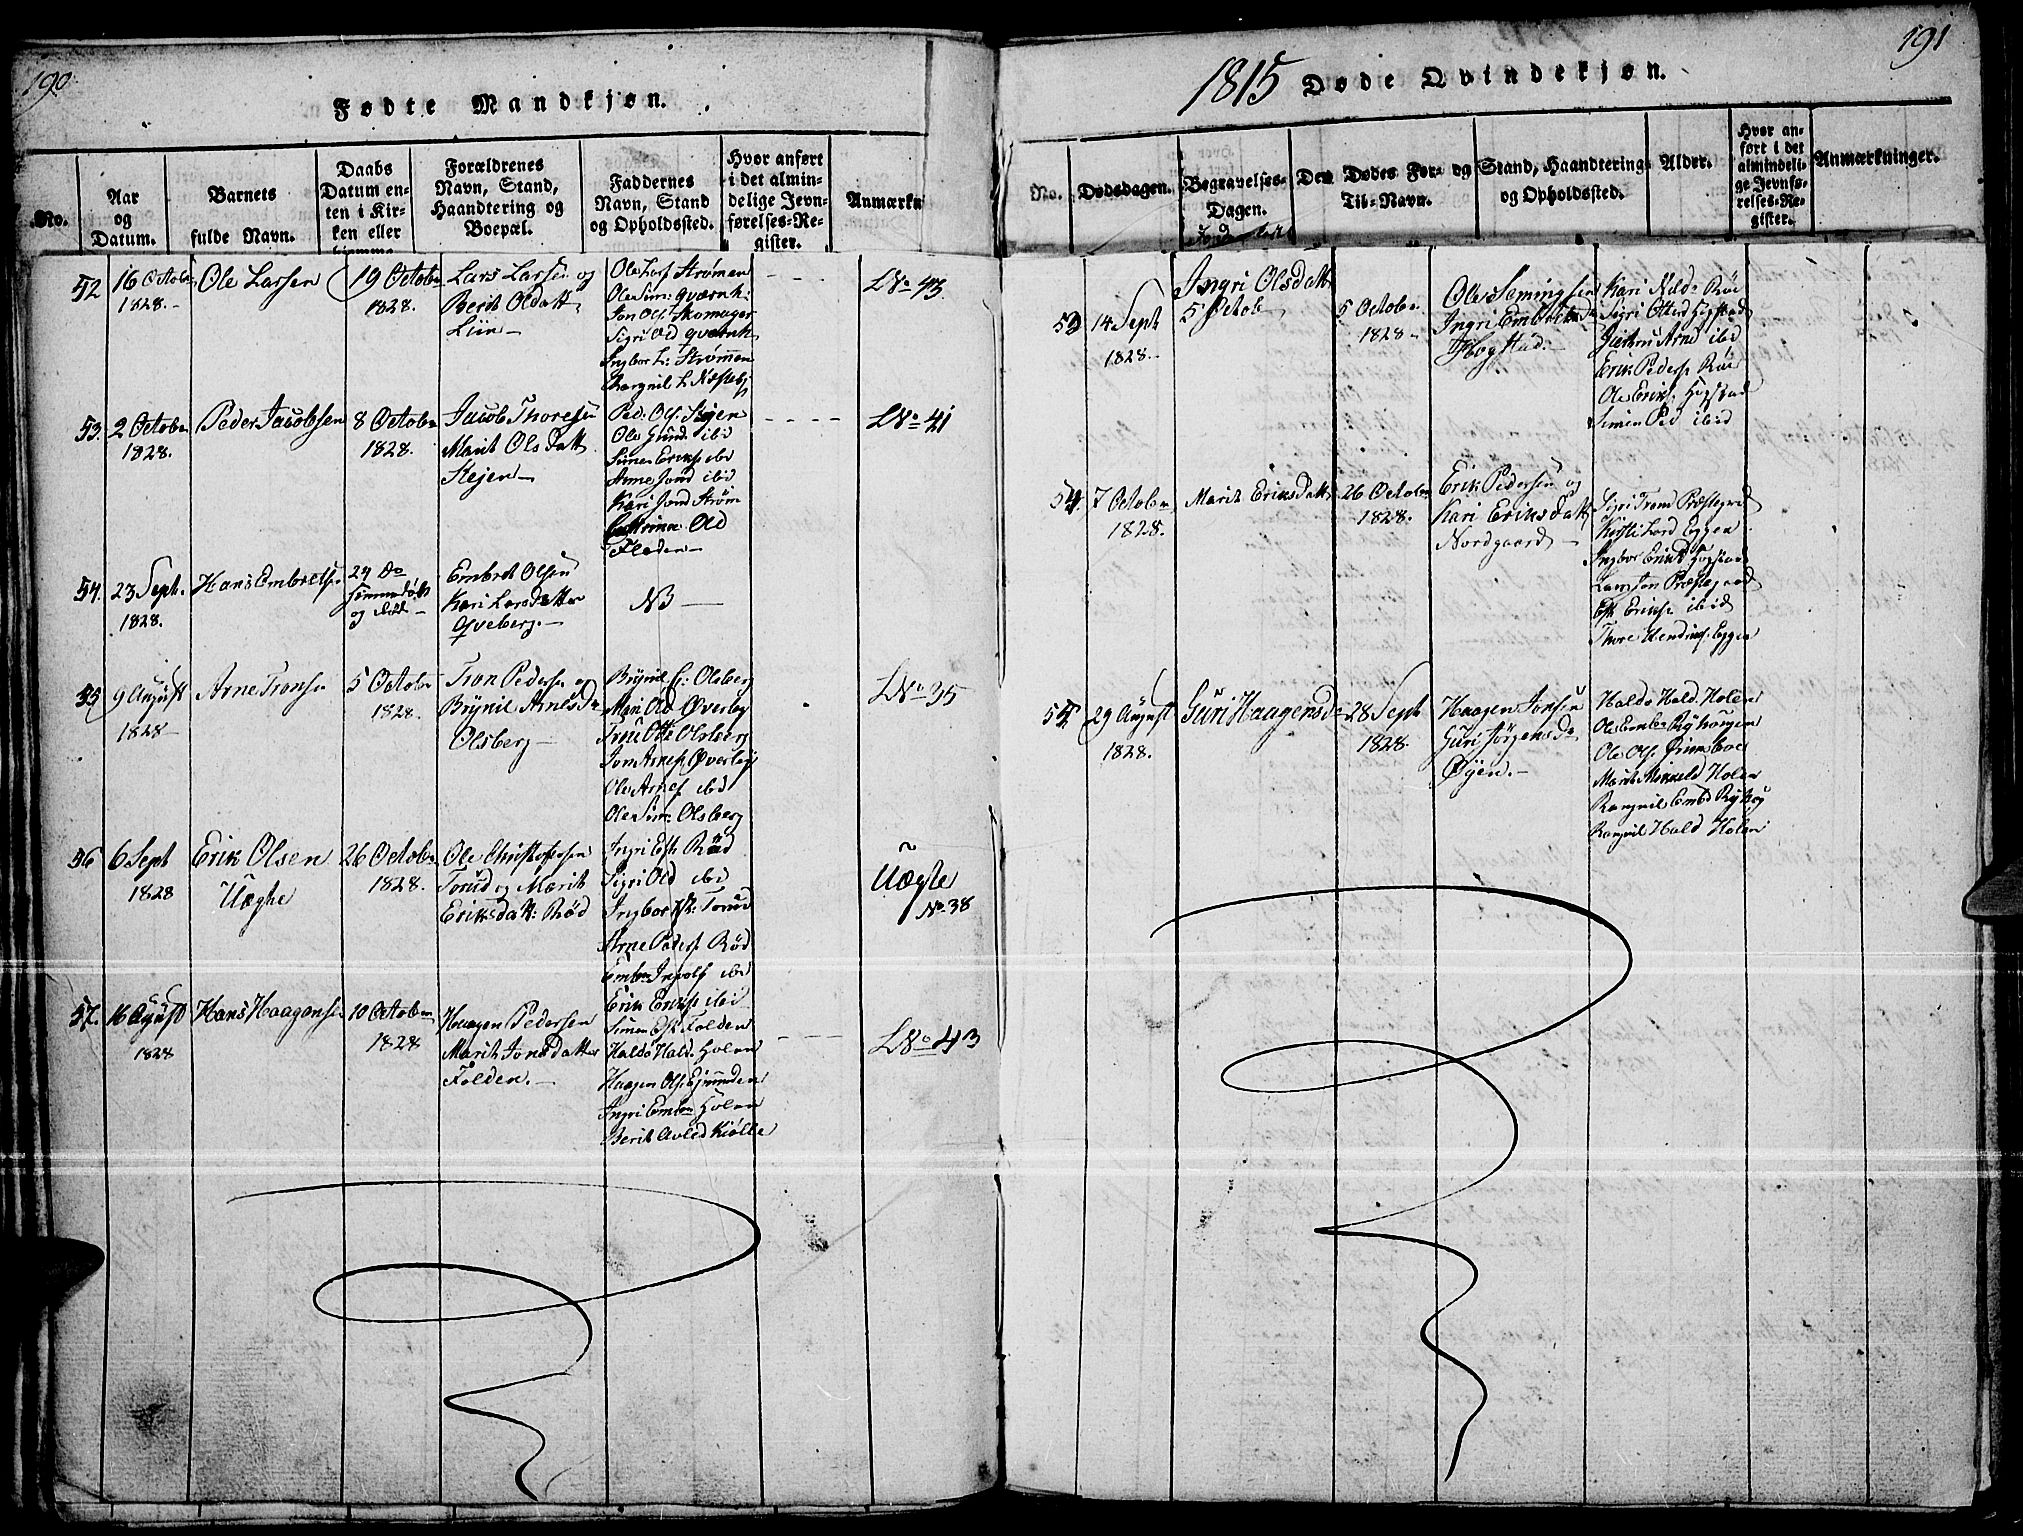 190
Fødte Mandkjøn.
No.
Aar og Datum.
Barnets fulde Navn.
Daabs Datum enten i Kirken eller hjemme
Forældrenes Navn, Stand, Haandtering og Boepæl.
Faddernes Navn, Stand og Opholdssted.
Hvor anført i det almindelige Jevnførelses-Register.
Anmærkn
52
16 Octobr
1828.
Ole Larsen
19 Octobr
1828.
Lars Larsen og
Berit Olsdatt
Liin
Ole Lars Strømen
Ole Sim: Qværnh:
Jon Ols Skomager
Sigri Old Qværnh
Ingbor L: Strømen
L No 43.
53.
2 Octobr
1828.
Peder Jacobsen
8 Octobr
1828.
Jacob Thoresen
Marit Olsdatt
Kejen
Ped: Ols:
Ole Gund: ibid
Simen Eriks ibd
Arne Jond ibid
Kari Jond Strøm
Old
Floden
L No 41
54.
23 Sept.
1828.
Hans Embretsen
24 Do
og død
Embret Olsen
Kari Larsdatter
Qveberg.
NB
55
9 August
1828
Arne Tronsen
5 Octobr
1828.
Tron Pedersen og
Brynil Arnesd
Olsberg
Brynil E: Olsberg
Mari Old Øverby
Otte Olsberg
Jon Arnes Øverby
Ole Arnes ibd
Ole Sim: Olsberg
L No 35
56
6 Sept
1828
Erik Olsen
Uægte
26 Octobr
1828.
Ole Christophersen
Torud og Marit
Eriksdatt: Rød
Ingri Est Rød
Sigri Old ibd
Ingbor Torud
Arne Peders Rød
Emb Ingvolf ibd
Erik Eriks ibd
Uægte
No 38
57.
16 August
1828
Hans Haagens
10 Octobr
1828
Haagen Pedersen
Marit Jonsdatter
Folden.
Simen Est: Folden
Haldo Hald. Holen
Haagen Ols
Ingri Emb Holen
Berit Avled Kiølle
L No 43
191
1815 Døde Qvindekjøn.
No.
Dødsdagen.
Begravelses-Dagen.
Den Dødes For- og Til-Navn.
Stand, Haandtering og Opholdssted.
Alder.
Hvor anført i det almindelige Jevnførelses-Register.
Anmærkninger.
53
14 Sept
1828.
Ingri Olsdatt
5 Octob
5 October
1828
Ole Semingsen
Ingri Embretsd
Hogstad.
Kari Nild: Røe
Sigri Otters Hogstad
Arne ibid
Erik Peders Røe
Ole Eriks: Hogstad
Simen Ped ibid
54.
7 Octobr
1828.
Marit Eriksdatt
26 Octobr
1828.
Erik Pedersen og
Kari Eriksdatt
Nordgaard
Sigri Trond Præstegrd
Eggen
Ingbor Eriksd Hogstad
Lars Jon Præstegaard
Est Eriks ibid
Thore Hendriks Eggen
55
29 August
1828.
Guri Haagensd
28 Sept
1828.
Haagen Jonsen
Guri Jørgensd
Øyen.
Haldo Hald. Holen
Ole Ols
Marit Mikkeld Holen
Rangnil Embd
Rangnil Hald Holen